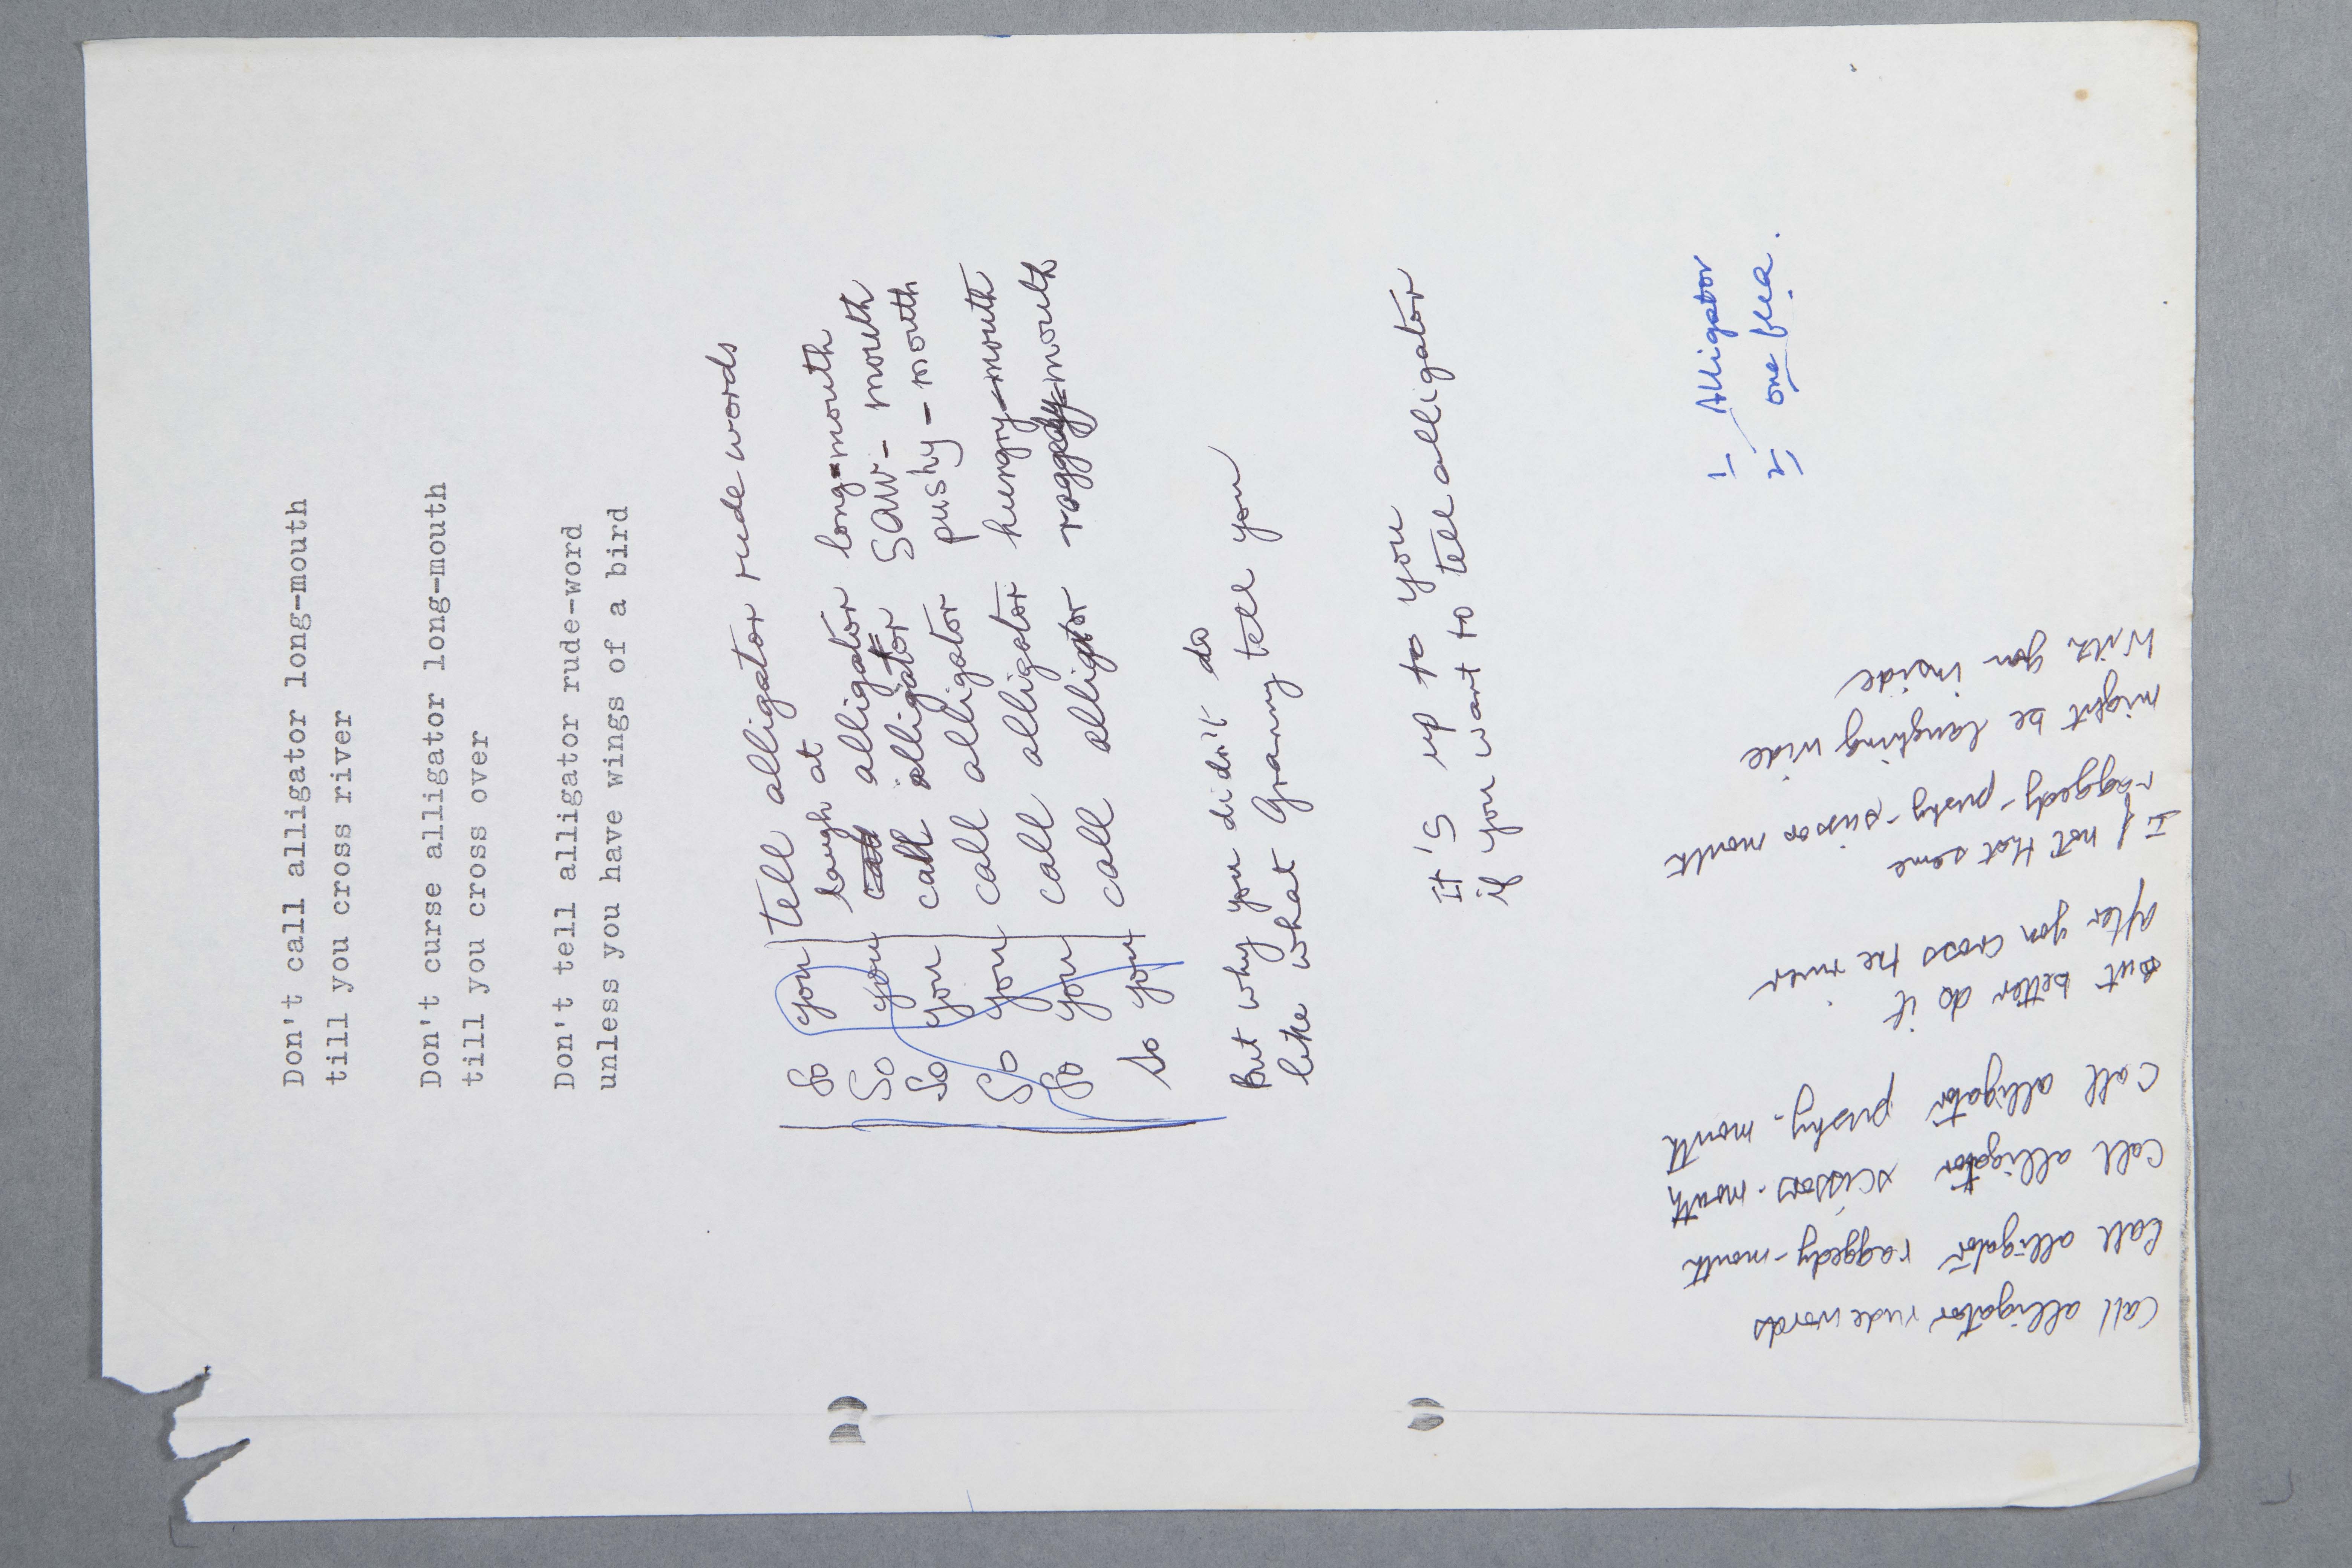 Don't call alligator long-mouth
till you cross river
Don't curse alligator long-mouth
till you cross over
Don't tell alligator rude-word
unless you have wings of a bird
So you tell alligator rude words
laugh at
So you call alligator long-mouth
So you call alligator saw-mouth
So you call alligator pushy-mouth
So you call alligator hungry-mouth
So you call alligator raggedy-mouth
But why you didn't do
like what Granny tell you
It's up to you
if you want to tell alligator
1- Alligator
2- one flea.
Call alligator rude words
Call alligator raggedy-mouth
Call alligator scissors-mouth
Call alligator pushy-mouth
But better do it
after you cross the river
If not that same
raggedy-pushy-sissor mouth
might be laughing wide
With you inside